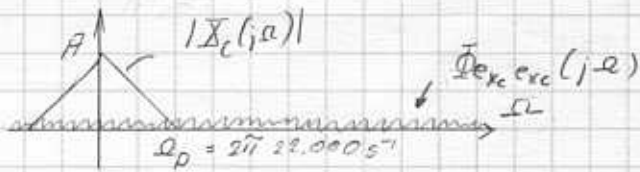 |X_c(jΩ)|
A
Φ_{e_{xc} e_{xc}}(jΩ)
Ω
Ω_p = 2π 22.000 s⁻¹